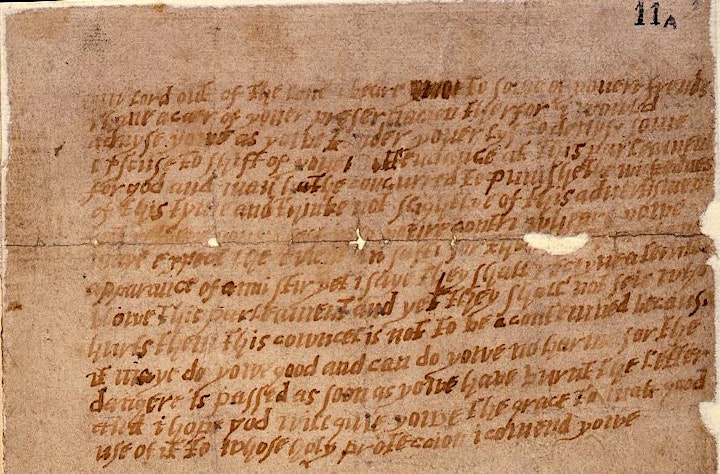 11A
my lord out of the love i beare to some of youere frends
i have a caer of youer preseruacion therfor i would
aduyse yowe as yowe tender youer lyf to deuyse some
excuse to shift of youer attendance at this parleament
for god and man hathe concurred to punishe the wickednes
of this tyme and thinke not slightlye of this aduertisment
youre contri wheare yowe
maye expect the in safti for
apparance of anni stir yet i saye they shall receyue a terrible
blowe this parleament and yet they shall not seie who
hurts them this cowncel is not to be acontemned because
it maye do yowe good and can do yowe no harme for the
dangere is passed as soon as yowe have burnt the letter
and i hope god will giue yowe the grace to mak good
use of it to whose holy proteccion i comend yowe